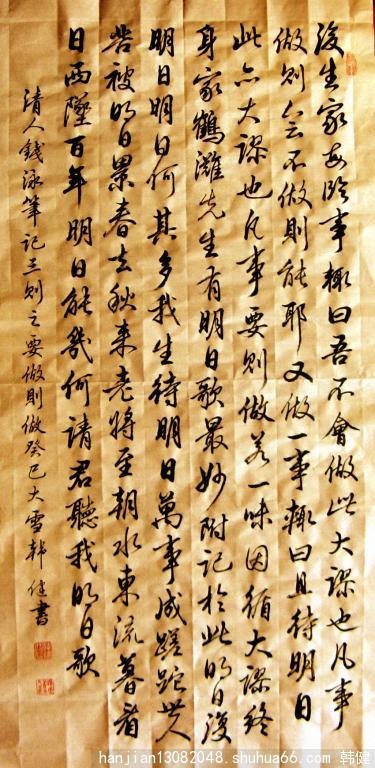 後生家每臨事輒曰吾不會做此大謬也凡事
做則會不做則能耶又做一事輒曰且待明日
此亦大謬也凡事要則做若一味因循大謬終
身家鶴灘先生有明日歌最妙附記於此明日復
明日明日何其多我生待明日萬事成蹉跎世人
苦被明日累春去秋來老將至朝水東流暮看
日西墜百年明日能幾何請君聽我明日歌
清人錢泳筆記三則之要做則做癸巳大雪韓健書
hanjian13082048.shuhua66.com 韩健